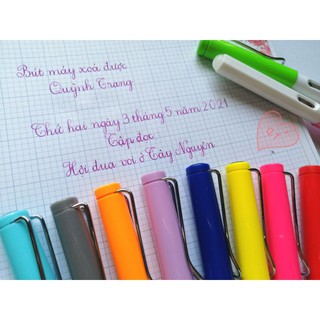 Bút máy xoá được
Quỳnh Trang
Thứ hai ngày 3 tháng 5 năm 2021
Tập đọc
Hội đua voi ở Tây Nguyên